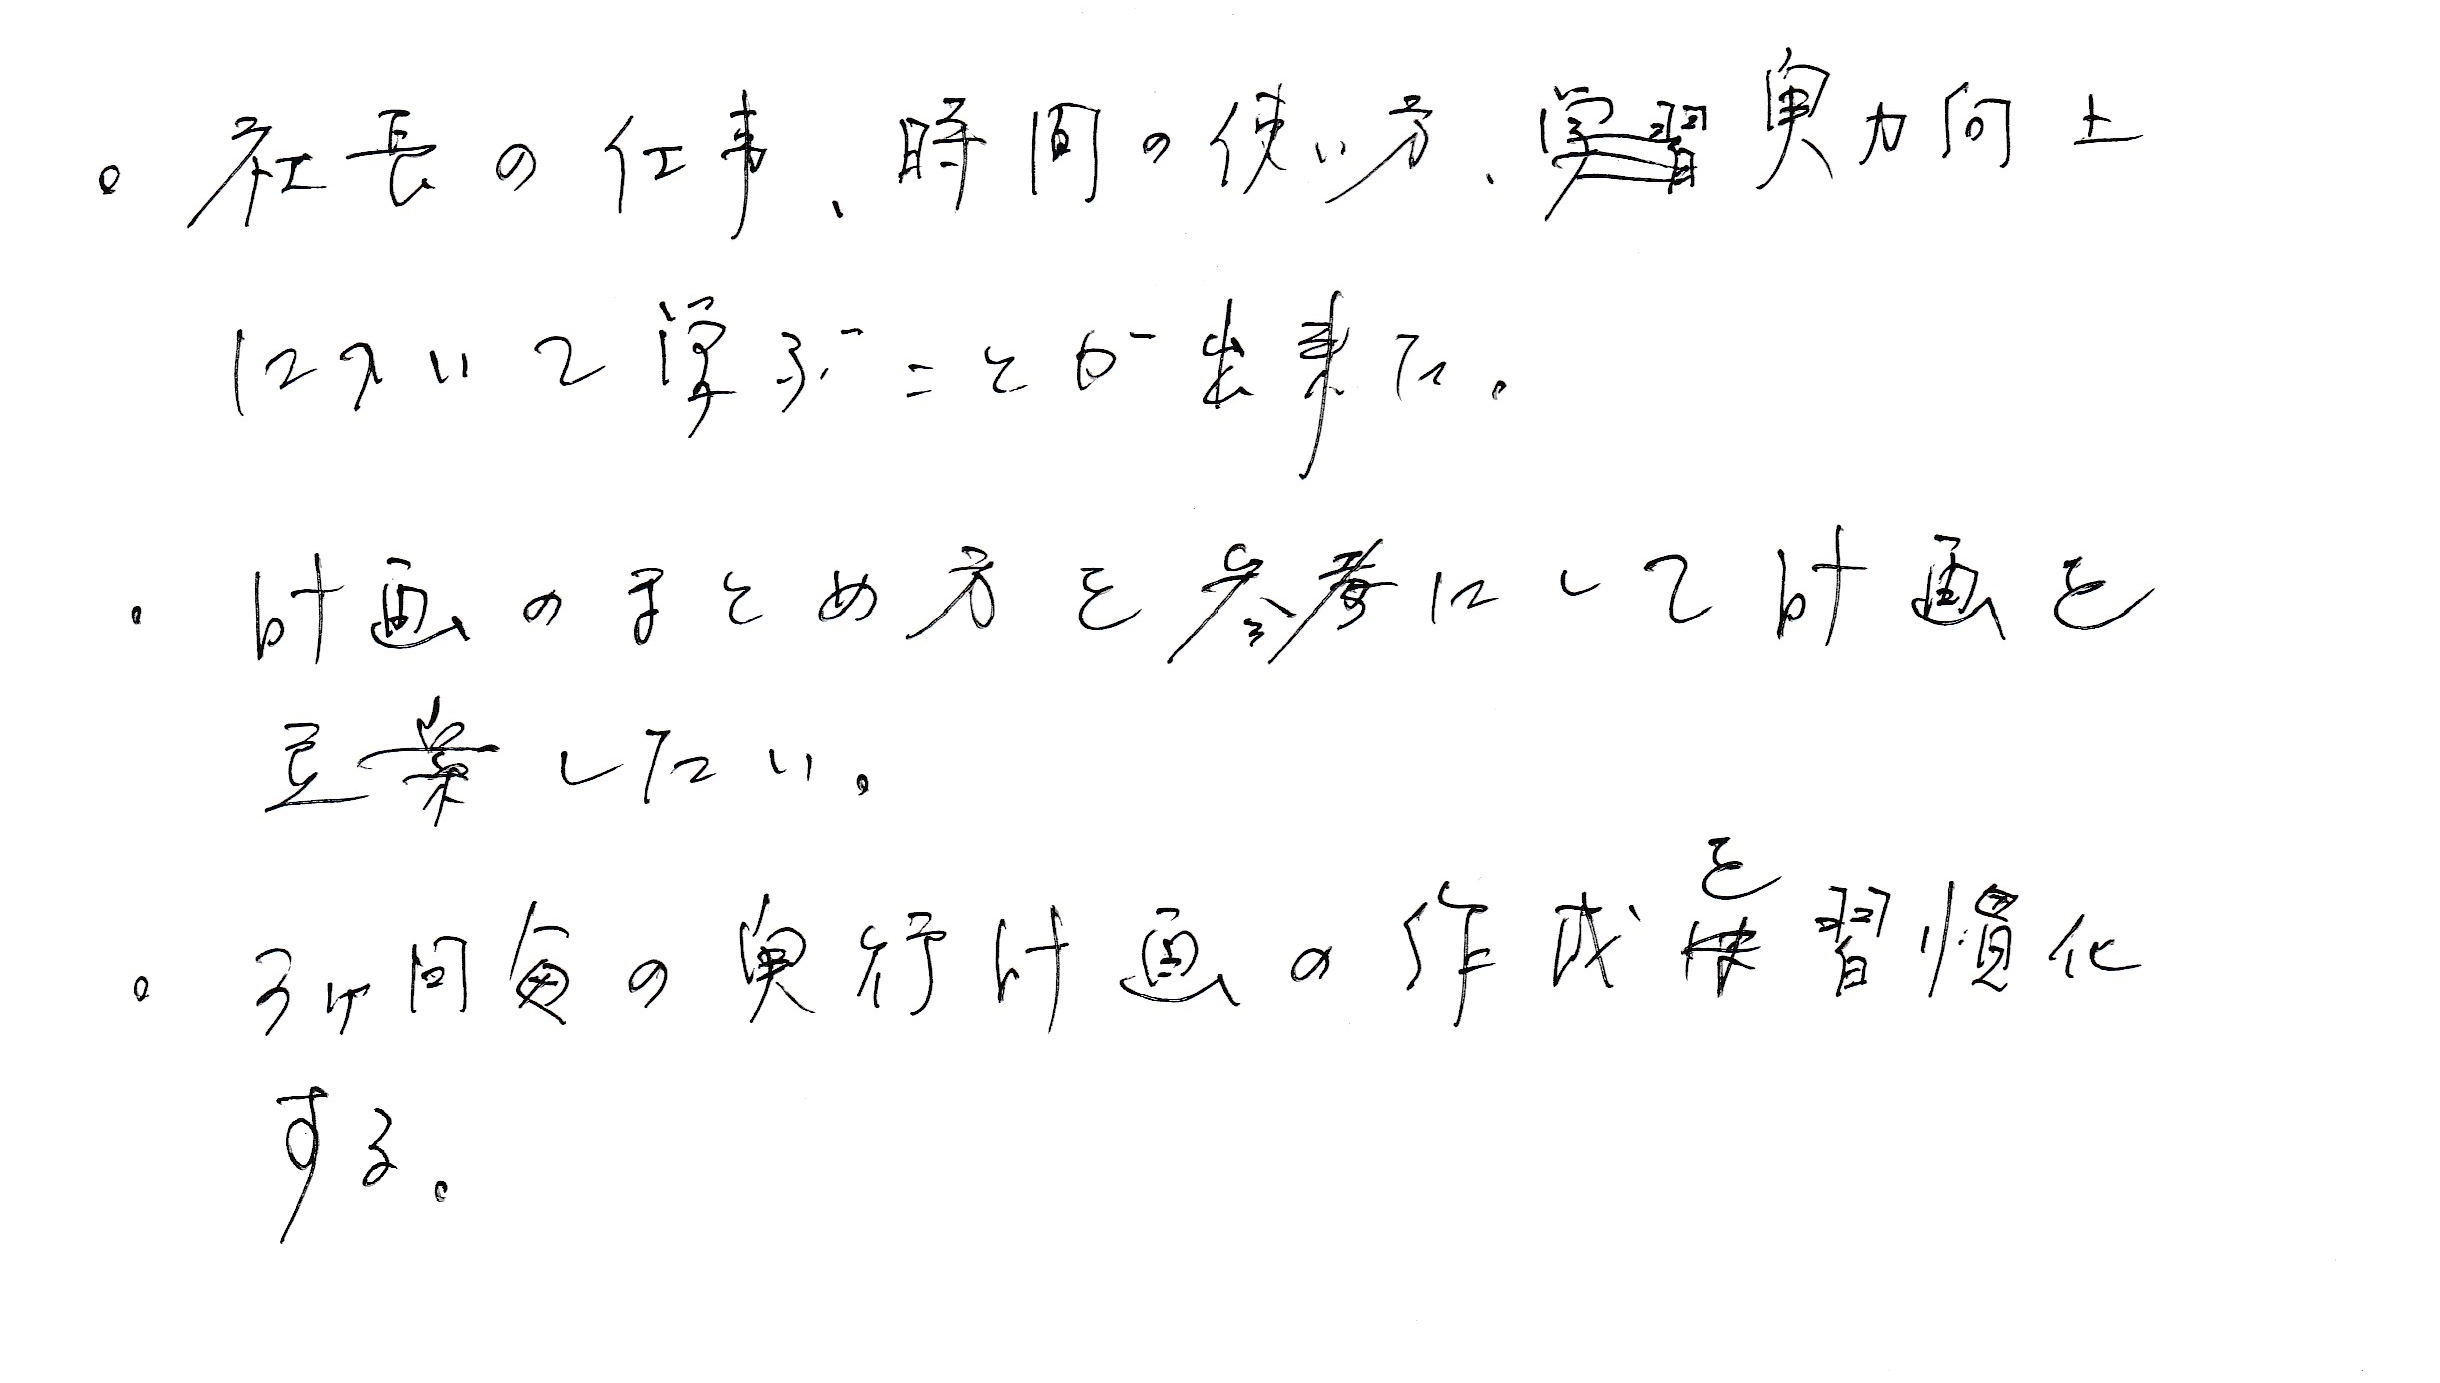 ・社長の仕事、時間の使い方、学習実力向上
について学ぶことが出来た。
・計画のまとめ方を参考にして計画を
立案したい。
・3ヶ間毎の実行計画の作成を習慣化
する。